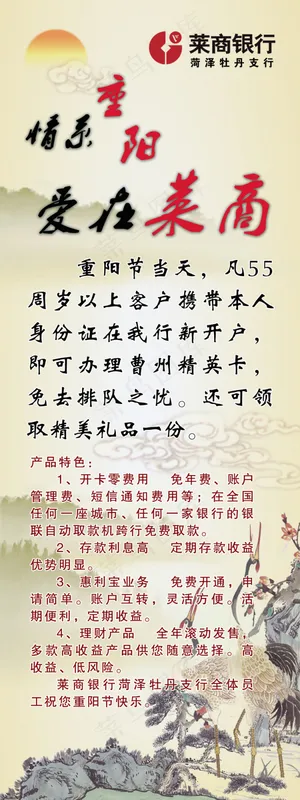 莱商银行
菏泽牡丹支行
情系重阳
爱在莱商
重阳节当天，凡55
周岁以上客户携带本人
身份证在我行新开户，
即可办理曹州精英卡，
免去排队之忧。还可领
取精美礼品一份。
产品特色：
1、开卡零费用　免年费、账户
管理费、短信通知费用等；在全国
任何一座城市、任何一家银行的银
联自动取款机跨行免费取款。
2、存款利息高　定期存款收益
优势明显。
3、惠利宝业务　免费开通，申
请简单。账户互转，灵活方便。活
期便利，定期收益。
4、理财产品　全年滚动发售，
多款高收益产品供您随意选择。高
收益、低风险。
莱商银行菏泽牡丹支行全体员
工祝您重阳节快乐。